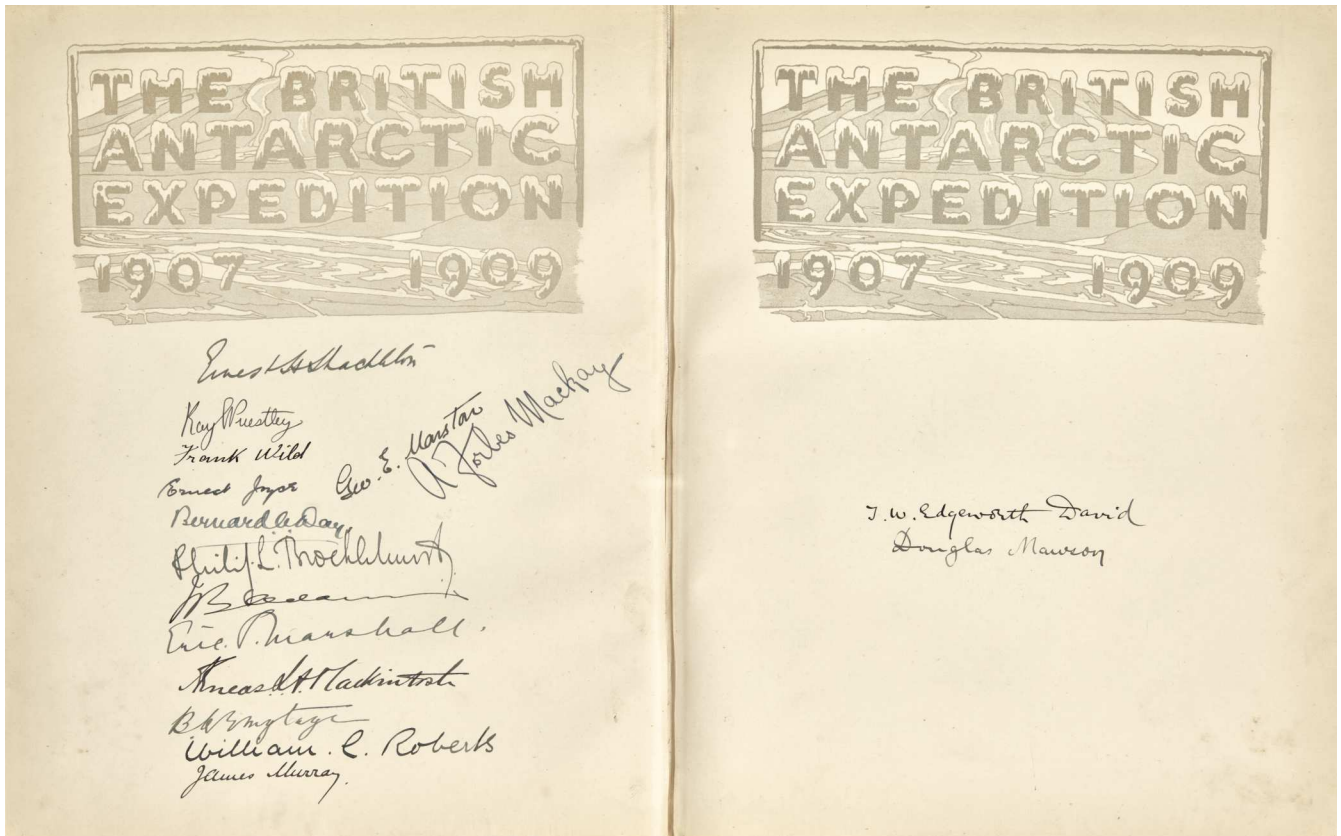 THE BRITISH
ANTARCTIC
EXPEDITION
1907 1909
Ernest H Shackleton
Ray Priestley
Frank Wild
Ernest Joyce
Geo. E. Marston
A Forbes Mackay
Bernard C. Day.
Philip L. Brocklehurst
JB Adams
Eric. P. Marshall.
Æneas L. A. Mackintosh
B Armytage
William. C. Roberts
James Murray.
THE BRITISH
ANTARCTIC
EXPEDITION
1907 1909
T. W. Edgeworth David
Douglas Mawson